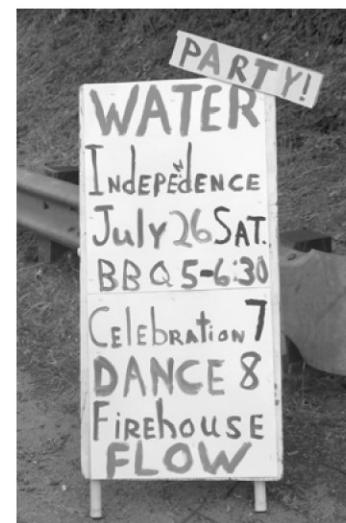 PARTY!
WATER
INDEPEDENCE
July 26 SAT.
BBQ 5-6:30
CELEBRATION 7
DANCE 8
FIREHOUSE
FLOW